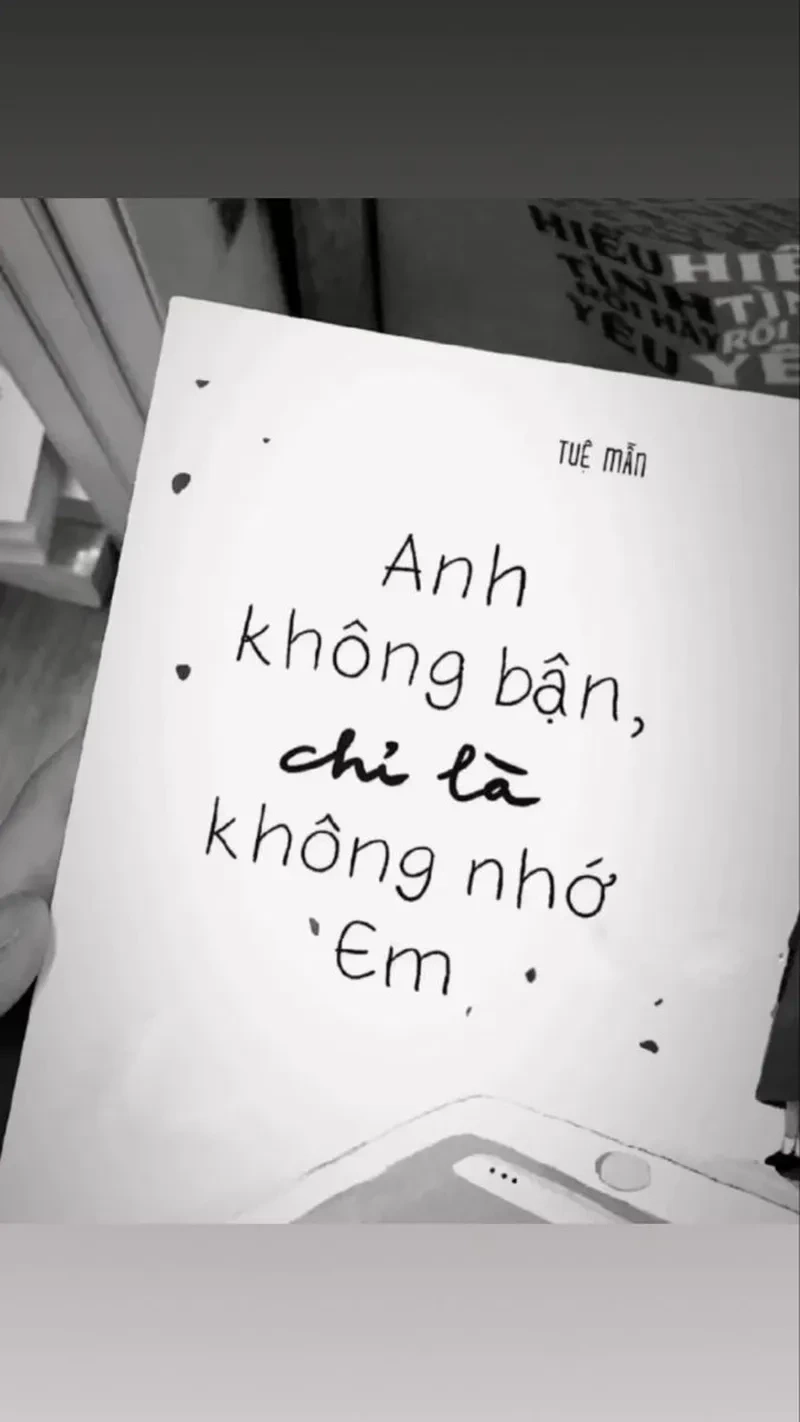 HIỂU
TÌNH
RỒI HÃY
YÊU
TUỆ MẪN
Anh
không bận,
chỉ là
không nhớ
Em